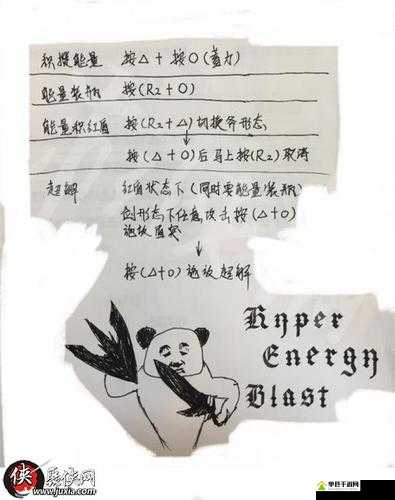 积攒能量 按△+按○(蓄力)
能量装瓶 按(R2+○)
能量积红盾 按(R2+△)切换斧形态
↓
按(△+○)后马上按(R2)取消
超解 红盾状态下(同时要能量装瓶)
剑形态下任意攻击按(△+○)
施放盾突
↓
按(△+○)施放超解
Hyper
Energy
Blast
侠 聚侠网
www.juxia.com
单县手游网